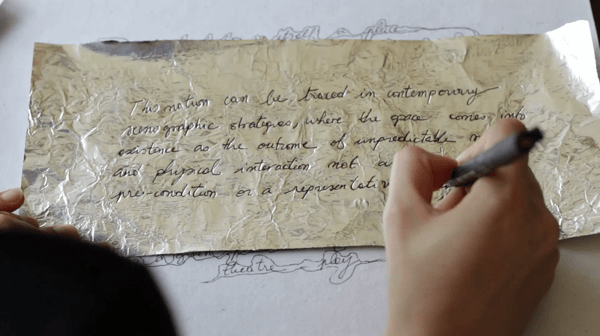 This notion can be traced in contemporary
scenographic strategies, where the space comes into
existence as the outcome of unpredictable
and physical interaction not a
pre-condition or a representativ
theatre play